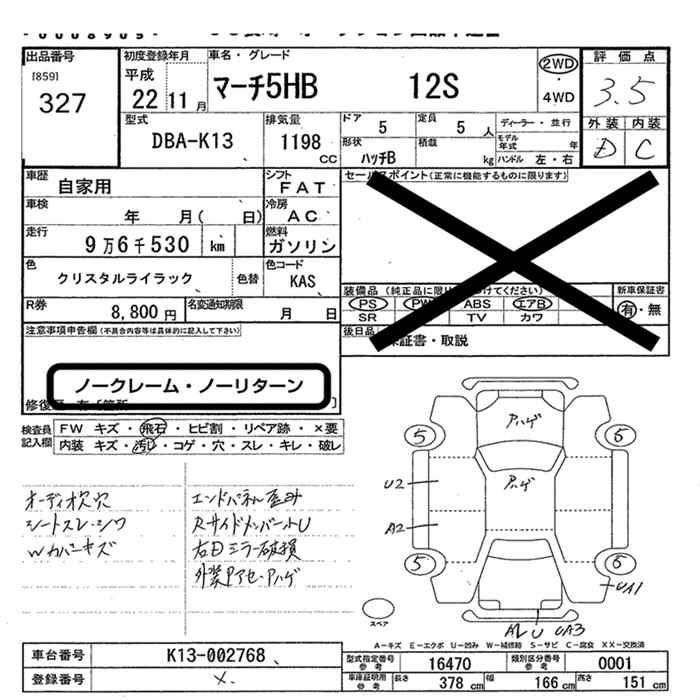 出品番号
[859]
327
初度登録年月
平成
22 11 月
車名・グレード
マーチ5HB 12S
2WD
4WD
評価点
3.5
外装 内装
D C
型式
DBA-K13
排気量
1198
CC
ドア
5
定員
5 人
ディーラー・並行
形状
ハッチB
積載
kg
モデル年式 年
ハンドル 左・右
車歴
自家用
シフト
FAT
セールスポイント(正常に機能するものに限ります)
車検
年 月( 日)
冷房
AC
走行
9万6千530 km
燃料
ガソリン
色
クリスタルライラック
色替
色コード
KAS
装備品
PS PW ABS エアB
SR TV カワ
新車保証書
有・無
R券
8,800 円
名変通知期限
月 日
後日品
保証書・取説
注意事項申告欄(不具合内容等は具体的に記入して下さい)
ノークレーム・ノーリターン
検査員記入欄
FW キズ・飛石・ヒビ割・リペア跡・×要
内装 キズ・汚れ・コゲ・穴・スレ・キレ・破レ
オーディオ欠穴
シートスレ・シワ
Wカバーキズ
エンドパネル歪み
RサイドメンバートU
右ドミラー破損
外装Pアセ・ハゲ
アハゲ
アハゲ
5 5
U2
A2
5 5
UA1
A2 U UA3
スペア
A-キズ E-エクボ U-凹み W-補修跡 S-サビ C-腐食 XX-交換済
車台番号
K13-002768
登録番号
×
型式指定番号参考
16470
類別区分番号参考
0001
車庫証明用参考
長さ 378 cm
幅 166 cm
高さ 151 cm